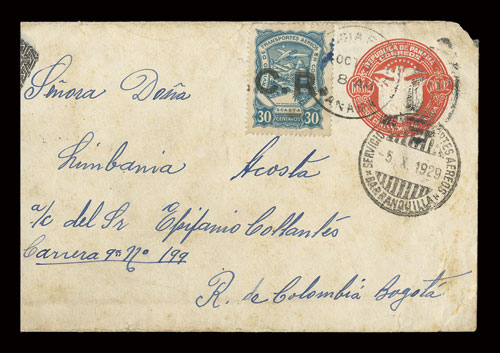 TRANSPORTES AEREOS
C.R.
30 30
CENTAVOS
REPUBLICA DE PANAMA
CORREOS
OCT
8
SERVICIO TRANSPORTES AEREOS
-5.X.1929
BARRANQUILLA
Señora Doña
Limbania Acosta
a/c del Sr Epifanio Collantés
Carrera 9ª Nº 199
R. de Colombia Bogotá